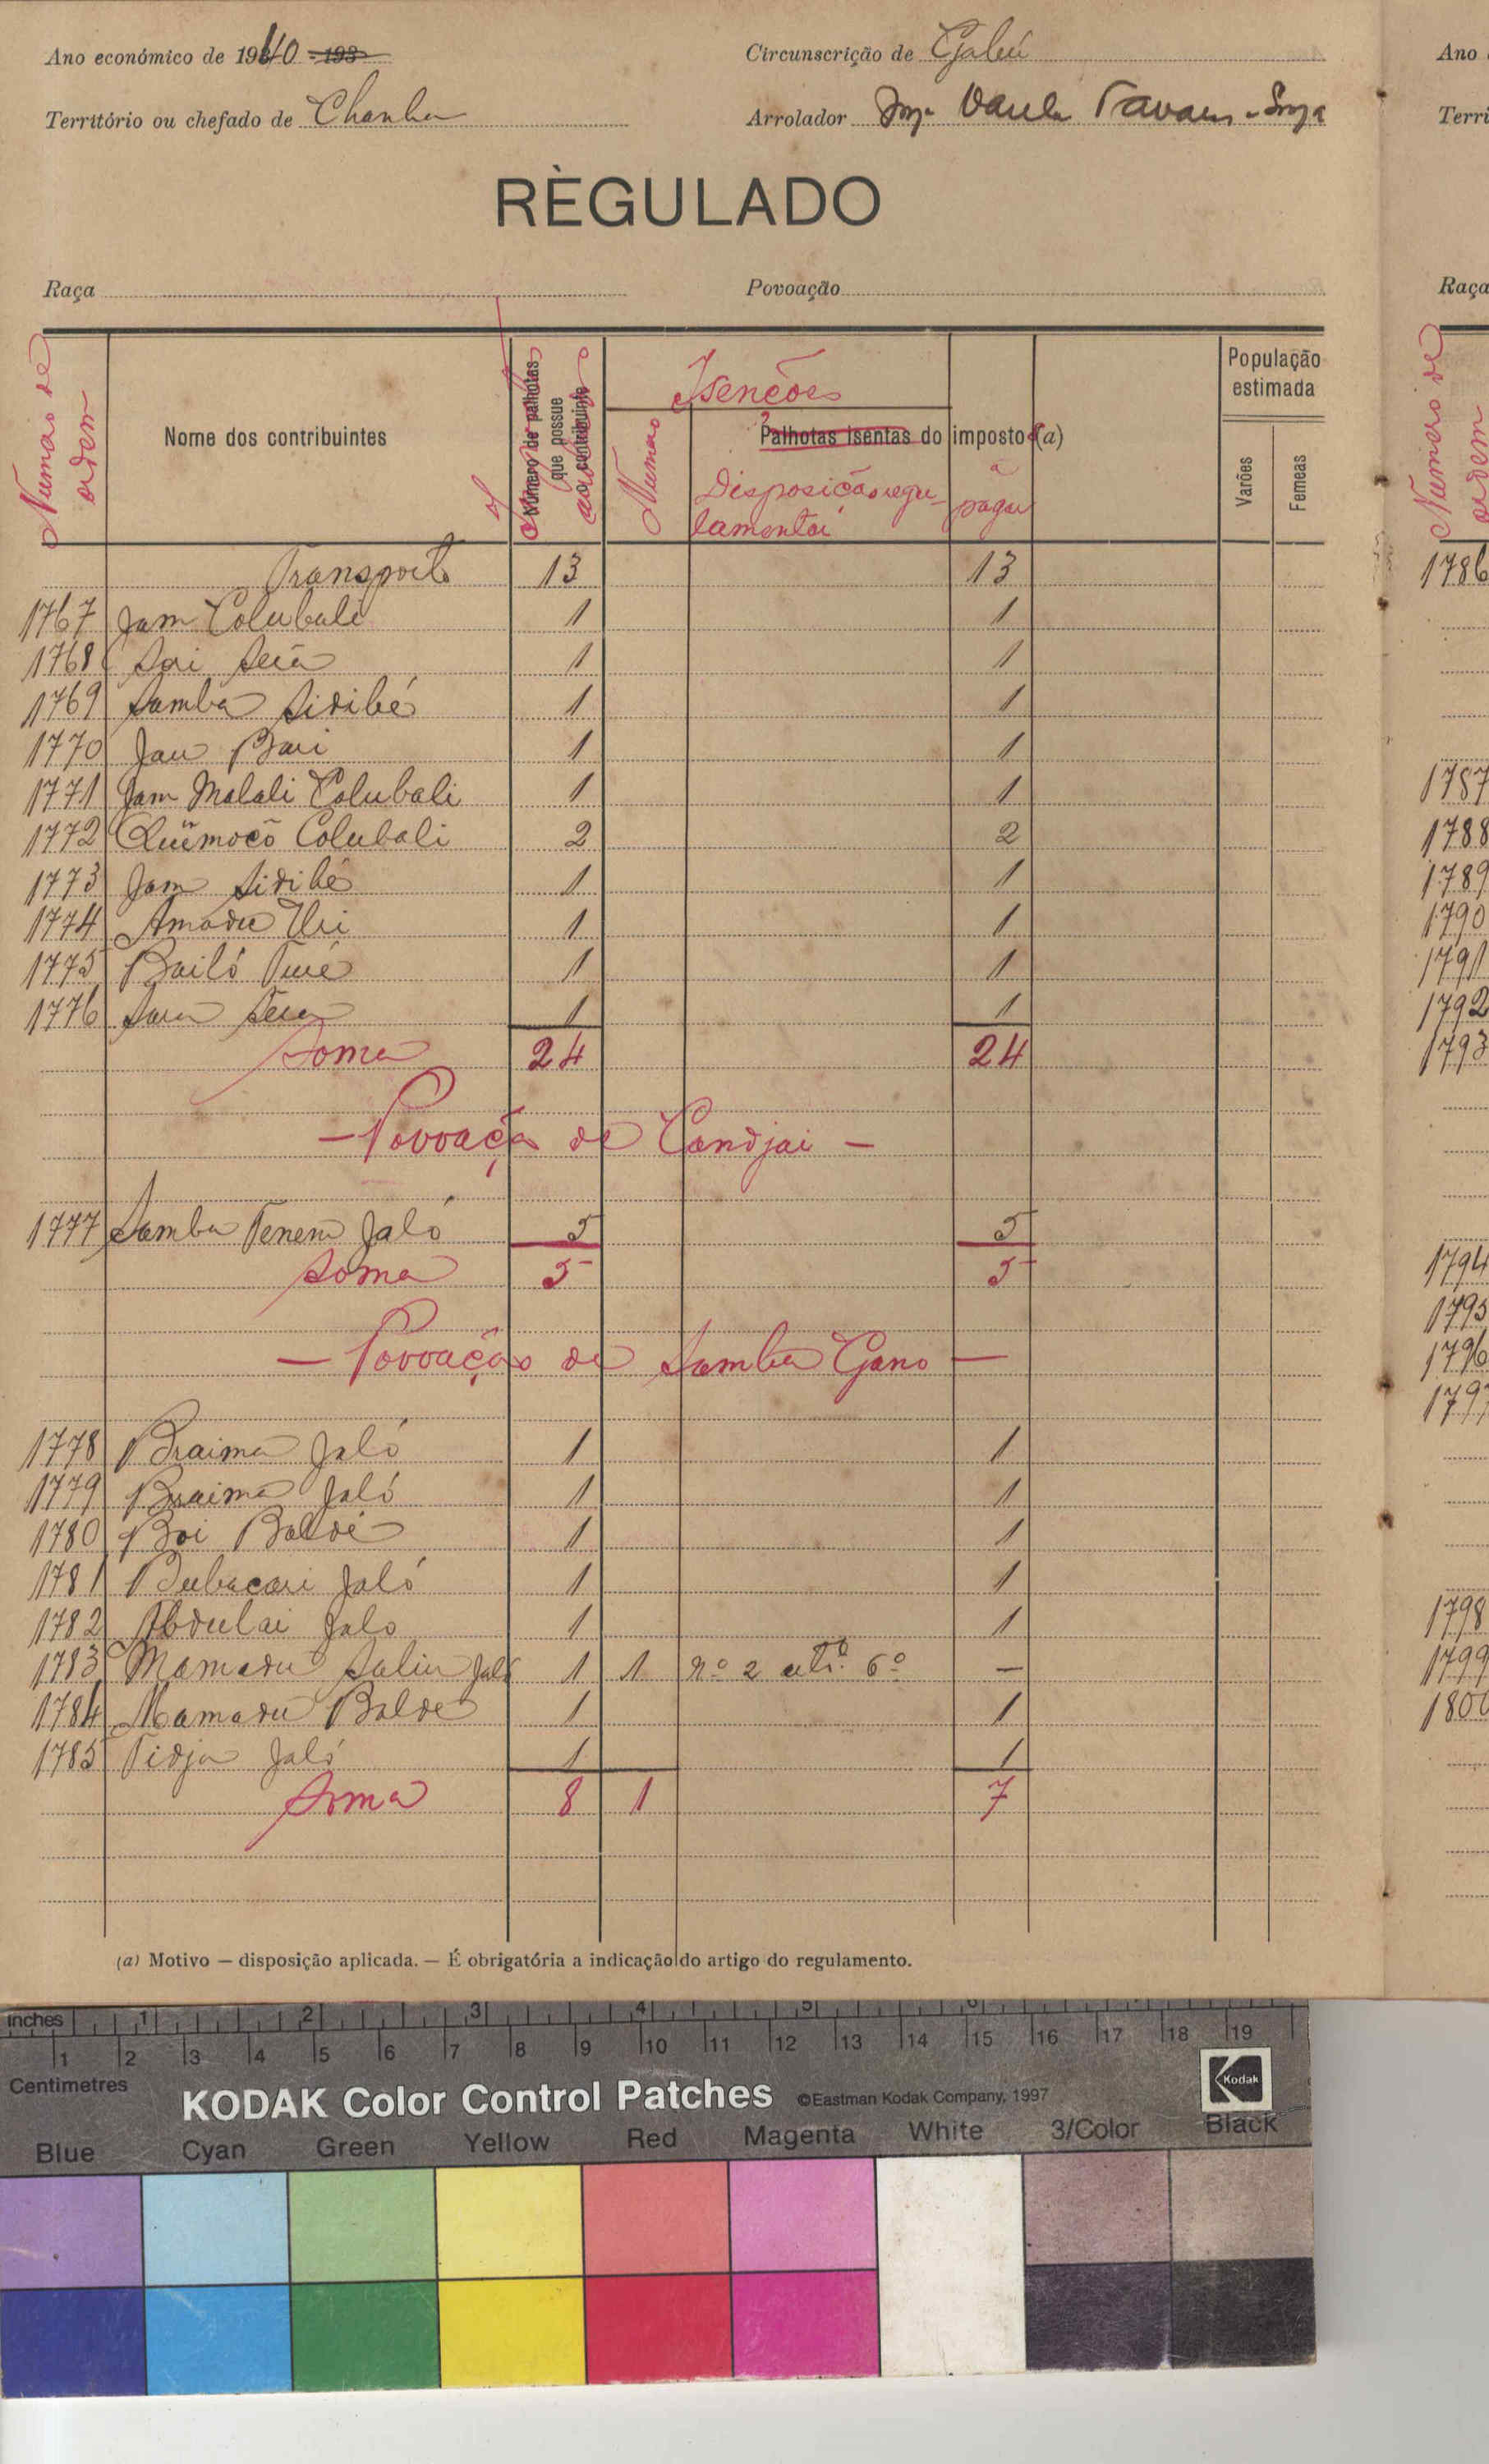 Ano económico de 1940 - 193
Circunscrição de Gabú
Território ou chefado de Chanha
Arrolador Tavares
RÈGULADO
Raça
Povoação
Numero de ordem
Nome dos contribuintes
Número de palhotas que possue o contribuinte
Isenções
Numero
Palhotas isentas do imposto (a)
Disposição regulamentar
a pagar
População estimada
Varões
Femeas
Transporte 13 13
1767 Jam Colubali 1 1
1768 Sai 1 1
1769 Samba Sidibé 1 1
1770 Jau Bari 1 1
1771 Jam Malali Colubali 1 1
1772 Quimocõ Colubali 2 2
1773 Jam Sidibé 1 1
1774 Amadu 1 1
1775 Bailó Turé 1 1
1776 1 1
Soma 24 24
— Povoação de Candjai —
1777 Samba Tenem Jaló 5 5
Soma 5 5
— Povoação de Samba Gano —
1778 Braima Jaló 1 1
1779 Braima Jaló 1 1
1780 Boi Baldé 1 1
1781 Bubacari Jaló 1 1
1782 Abdulai Jalo 1 1
1783 Mamadu Saliu Jaló 1 1 nº 2 artº. 6º —
1784 Mamadu Balde 1 1
1785 Tidja Jaló 1 1
Soma 8 1 7
(a) Motivo — disposição aplicada. — É obrigatória a indicação do artigo do regulamento.
Ano
Terri
Raça
Numero de ordem
1786
1787
1788
1789
1790
1791
1792
1793
1794
1795
1796
1797
1798
1799
1800
inches 1 2 3 4 5 6
1 2 3 4 5 6 7 8 9 10 11 12 13 14 15 16 17 18 19
Centimetres
KODAK Color Control Patches ©Eastman Kodak Company, 1997
Kodak
Blue Cyan Green Yellow Red Magenta White 3/Color Black